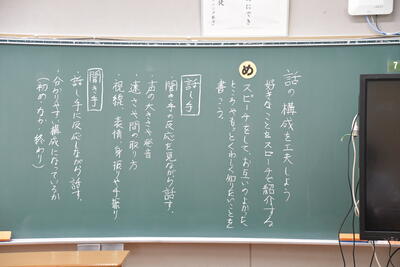 話の構成を工夫しよう
好きなことをスピーチで紹介する
め
スピーチをして、お互いのよかった
ところやもっとくわしく知りたいことを
書こう。
話し手
・聞き手の反応を見ながら話す。
・声の大きさや発音
・速さや間の取り方
・視線、表情、身振りや手振り
聞き手
・話し手に反応しながら話す。
・分かりやすい構成になっているか
(初め・なか・終わり)
7